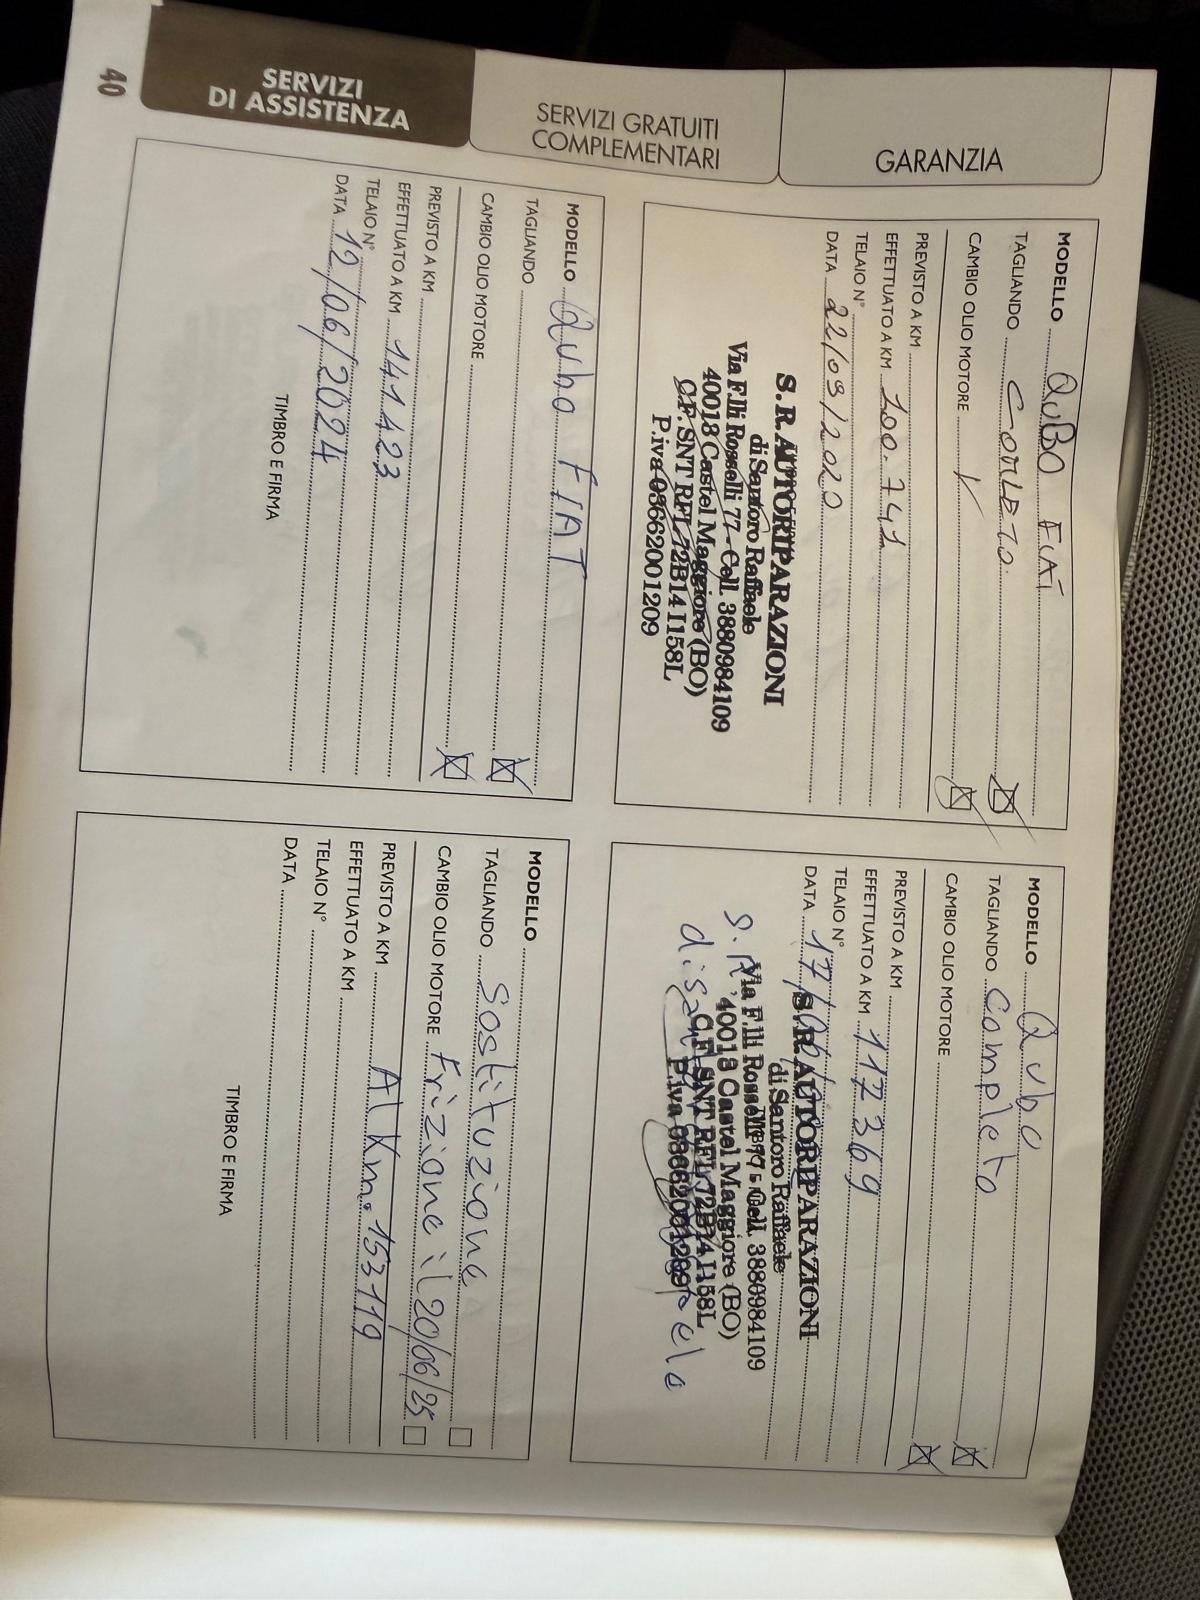 GARANZIA
SERVIZI GRATUITI
COMPLEMENTARI
SERVIZI
DI ASSISTENZA
40
MODELLO QUBO FIAT
TAGLIANDO COMPLETO
CAMBIO OLIO MOTORE
PREVISTO A KM
EFFETTUATO A KM 100.741
TELAIO N°
DATA 22/09/2020
S.R. AUTORIPARAZIONI
di Santoro Raffaele
Via F.lli Rosselli 77 - Cell. 3880984109
40013 Castel Maggiore (BO)
C.F. SNT RFL 72B14 I158L
P.iva 03662001209
MODELLO Qubo
TAGLIANDO Completo
CAMBIO OLIO MOTORE
PREVISTO A KM
EFFETTUATO A KM 117369
TELAIO N°
DATA 17/
S.R. AUTORIPARAZIONI
di Santoro Raffaele
Via F.lli Rosselli Cell. 3880984109
40013 Castel Maggiore (BO)
C.F. SNT RFL 72B14 I158L
P.iva 03662001209
S.R.
MODELLO Qubo FIAT
TAGLIANDO
CAMBIO OLIO MOTORE
PREVISTO A KM
EFFETTUATO A KM 141423
TELAIO N°
DATA 12/06/2024
TIMBRO E FIRMA
MODELLO
TAGLIANDO Sostituzione
CAMBIO OLIO MOTORE Frizione il 20/06/25
PREVISTO A KM Al Km. 153119
EFFETTUATO A KM
TELAIO N°
DATA
TIMBRO E FIRMA